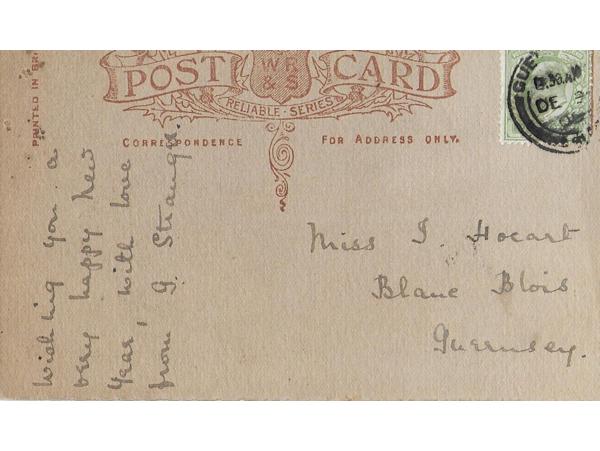 PRINTED IN
POST CARD
W R & S
RELIABLE SERIES
CORRESPONDENCE
FOR ADDRESS ONLY.
GUE
8.30 AM
DE
Wishing you a
very happy new
Year, with love
from G. Stranger.
Miss I. Hocart
Blanc Blois
Guernsey.